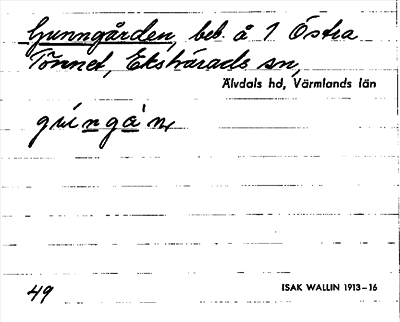 Gunngården, beb. å 1 Östra
Tönnet, Ekshärads sn,
Älvdals hd, Värmlands län
49
ISAK WALLIN 1913–16